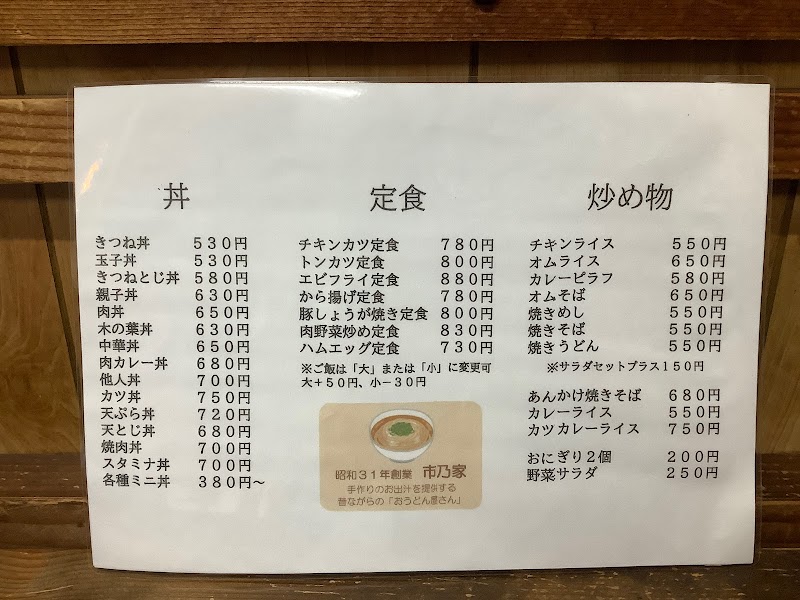 丼
きつね丼 ５３０円
玉子丼 ５３０円
きつねとじ丼 ５８０円
親子丼 ６３０円
肉丼 ６５０円
木の葉丼 ６３０円
中華丼 ６５０円
肉カレー丼 ６８０円
他人丼 ７００円
カツ丼 ７５０円
天ぷら丼 ７２０円
天とじ丼 ６８０円
焼肉丼 ７００円
スタミナ丼 ７００円
各種ミニ丼 ３８０円～
定食
チキンカツ定食 ７８０円
トンカツ定食 ８００円
エビフライ定食 ８８０円
から揚げ定食 ７８０円
豚しょうが焼き定食 ８００円
肉野菜炒め定食 ８３０円
ハムエッグ定食 ７３０円
※ご飯は「大」または「小」に変更可
大＋５０円、小－３０円
昭和３１年創業 市乃家
手作りのお出汁を提供する
昔ながらの「おうどん屋さん」
炒め物
チキンライス ５５０円
オムライス ６５０円
カレーピラフ ５８０円
オムそば ６５０円
焼きめし ５５０円
焼きそば ５５０円
焼きうどん ５５０円
※サラダセットプラス１５０円
あんかけ焼きそば ６８０円
カレーライス ５５０円
カツカレーライス ７５０円
おにぎり２個 ２００円
野菜サラダ ２５０円